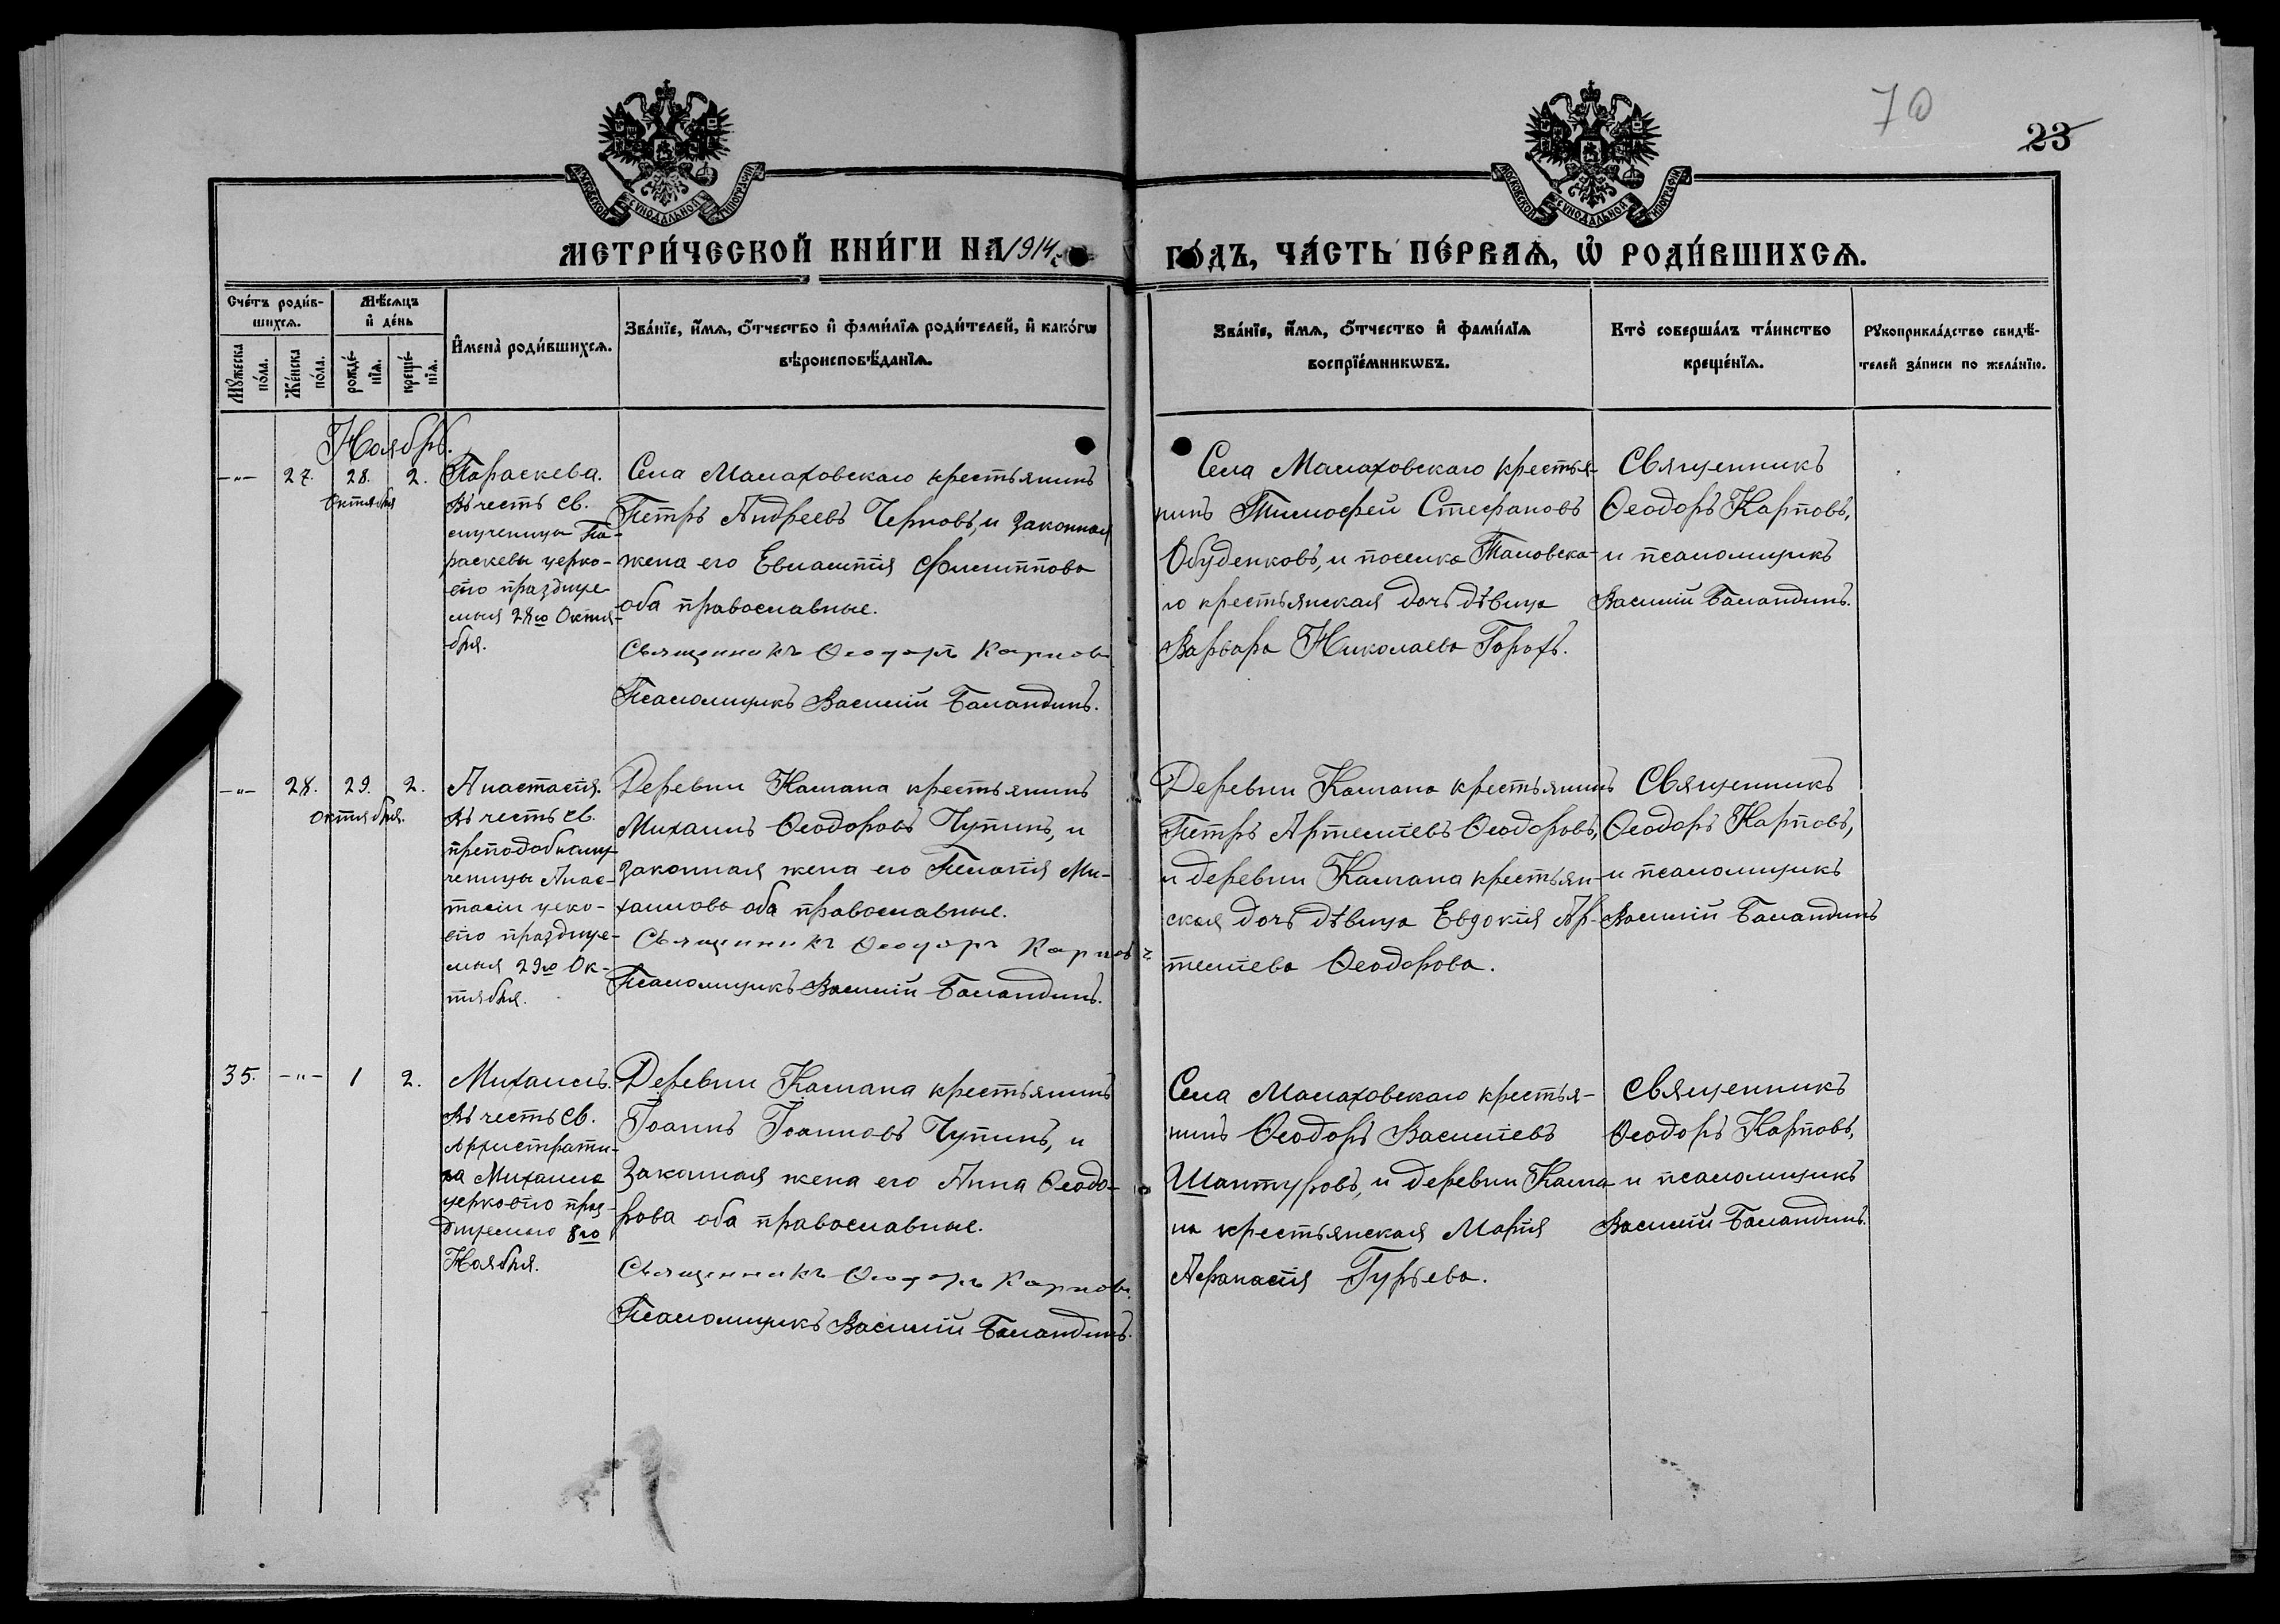 70
23
МОСКОВСКОЙ СѴНОДАЛЬНОЙ ТИПОГРАФІИ
МОСКОВСКОЙ СѴНОДАЛЬНОЙ ТИПОГРАФІИ
МЕТРИ́ЧЕСКОЙ КНИ́ГИ НА 1914
ГО́ДЪ, ЧА́СТЬ ПЕ́РВАѦ, Ѡ҆ РОДИ́ВШИХСѦ.
Сче́тъ роди́в-
шихсѧ.
Мꙋ́жеска
по́ла.
Же́нска
по́ла.
Мѣ́сѧцъ
и҆ де́нь
рожде́-
нїѧ.
креще́-
нїѧ.
И҆мена̀ роди́вшихсѧ.
Зва́нїе, и҆́мѧ, ѻ҆́тчество и҆ фами́лїѧ роди́телей, и҆ како́гѡ
вѣроисповѣ́данїѧ.
Зва́нїе, и҆́мѧ, ѻ҆́тчество и҆ фами́лїѧ
воспрїе́мникѡвъ.
Кто̀ соверша́лъ та́инство
креще́нїѧ.
Рꙋкоприкла́дство свидѣ́-
телей за́писи по жела́нїю.
Ноябрь.
-"- 27. 28. 2.
Октября
Параскева.
Въ честь св.
мученицы Па-
раскевы церко-
вію праздпуе-
мыя 28го Октя-
бря.
Села Малаховскаго крестьянинъ
Петръ Андреевъ Черновъ, и законная
жена его Евлампія Филиппова
оба православные.
Священникъ Ѳеодоръ Карповъ
Псаломщикъ Василій Баландинъ.
Села Малаховскаго крестья-
нинъ Тимофей Стефановъ
Обуденковъ, и поселка Таловска-
го крестьянская дочь дѣвица
Варвара Николаева Горохъ.
Священникъ
Ѳеодоръ Карповъ,
и псаломщикъ
Василій Баландинъ.
-"- 28. 29. 2.
Октября.
Анастасія.
Въ честь св.
преподобному-
ченицы Анас-
тасіи церко-
вію празднуе-
мыя 29го Ок-
тября.
Деревни Камана крестьянинъ
Михаилъ Ѳеодоровъ Чупинъ, и
законная жена его Пелагія Ми-
хаилова оба православные.
Священникъ Ѳеодоръ Карповъ
Псаломщикъ Василій Баландинъ.
Деревни Камана крестьянинъ
Петръ Артеміевъ Ѳеодоровъ,
и деревни Камана крестьян-
ская дочь дѣвица Евдокія Ар-
теміева Ѳеодорова.
Священникъ
Ѳеодоръ Карповъ,
и псаломщикъ
Василій Баландинъ
35. -"- 1 2.
Михаилъ.
Въ честь св.
Архистрати-
га Михаила
церковію праз-
днуемаго 8го
Ноября.
Деревни Камана крестьянинъ
Іоаннъ Іоанновъ Чупинъ, и
законная жена его Анна Ѳеодо-
рова оба православные.
Священникъ Ѳеодоръ Карповъ.
Псаломщикъ Василій Баландинъ.
Села Малаховскаго крестья-
нинъ Ѳеодоръ Василіевъ
Шантуровъ, и деревни Кама-
на крестьянская Марія
Афанасія Гурьева.
священникъ
Ѳеодоръ Карповъ,
и псаломщикъ
Василій Баландинъ.